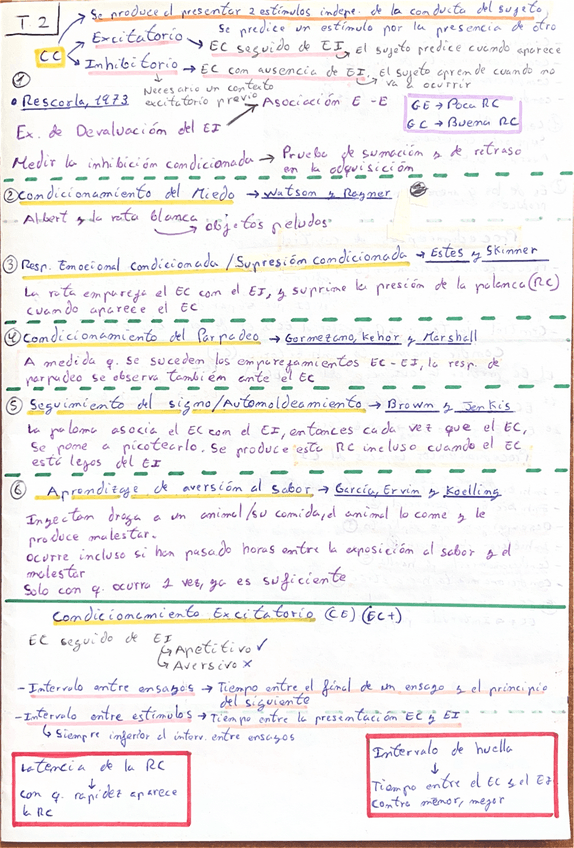 T 2
Se produce al presentar 2 estímulos indep. de la conducta del sujeto
Se predice un estímulo por la presencia de otro
CC
Excitatorio → EC seguido de EI, el sujeto predice cuando aparece
Inhibitorio → EC con ausencia de EI, el sujeto aprende cuando no va a ocurrir
Necesario un contexto
excitatorio previo
①
• Rescorla, 1973
Asociación E - E
GE → Poca RC
GC → Buena RC
Ex. de Devaluación del EI
Medir la inhibición condicionada → Prueba de sumación y de retraso
en la adquisición
② Condicionamiento del Miedo → Watson y Rayner
Albert y la rata blanca
objetos peludos
③ Resp. Emocional condicionada / Supresión condicionada → Estes y Skinner
La rata empareja el EC con el EI, y suprime la presión de la palanca (RC)
cuando aparece el EC
④ Condicionamiento del Parpadeo → Gormezano, Kehor y Marshall
A medida q. se suceden los emparejamientos EC-EI, la resp. de
parpadeo se observa también ante el EC
⑤ Seguimiento del signo/Automoldeamiento → Brown y Jenkis
La paloma asocia el EC con el EI, entonces cada vez que el EC,
se pone a picotearlo. Se produce esta RC incluso cuando el EC
está lejos del EI
⑥ Aprendizaje de aversión al sabor → García, Ervin y Koelling
Inyectan droga a un animal/su comida, el animal lo come y le
produce malestar.
Ocurre incluso si han pasado horas entre la exposición al sabor y el
malestar
Solo con q. ocurra 1 vez, ya es suficiente
Condicionamiento Excitatorio (CE) (EC+)
EC seguido de EI
↳ Apetitivo ✓
↳ Aversivo ×
- Intervalo entre ensayos → Tiempo entre el final de un ensayo y el principio
del siguiente
- Intervalo entre estímulos → Tiempo entre la presentación EC y EI
↳ Siempre inferior al interv. entre ensayos
Latencia de la RC
↓
con q. rapidez aparece
la RC
Intervalo de huella
↓
Tiempo entre el EC y el EI
contra menor, mejor